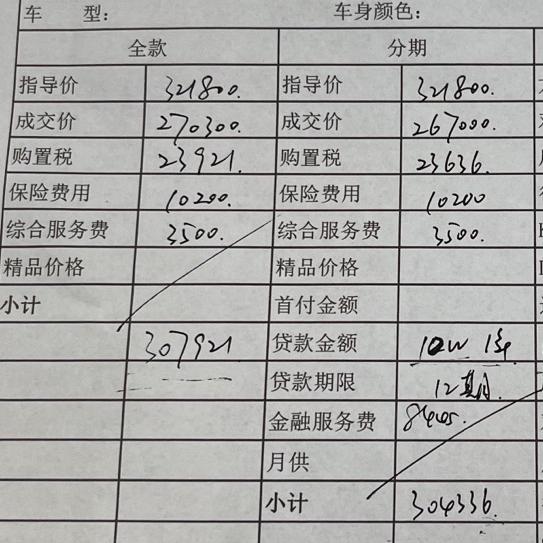 车 型: 车身颜色:
全款 分期
指导价 321800. 指导价 321800.
成交价 270300. 成交价 267000.
购置税 23921. 购置税 23636.
保险费用 10200. 保险费用 10200
综合服务费 3500. 综合服务费 3500.
精品价格 精品价格
小计 首付金额
307921 贷款金额 10W 1年
贷款期限 12期
金融服务费
月供
小计 304336.